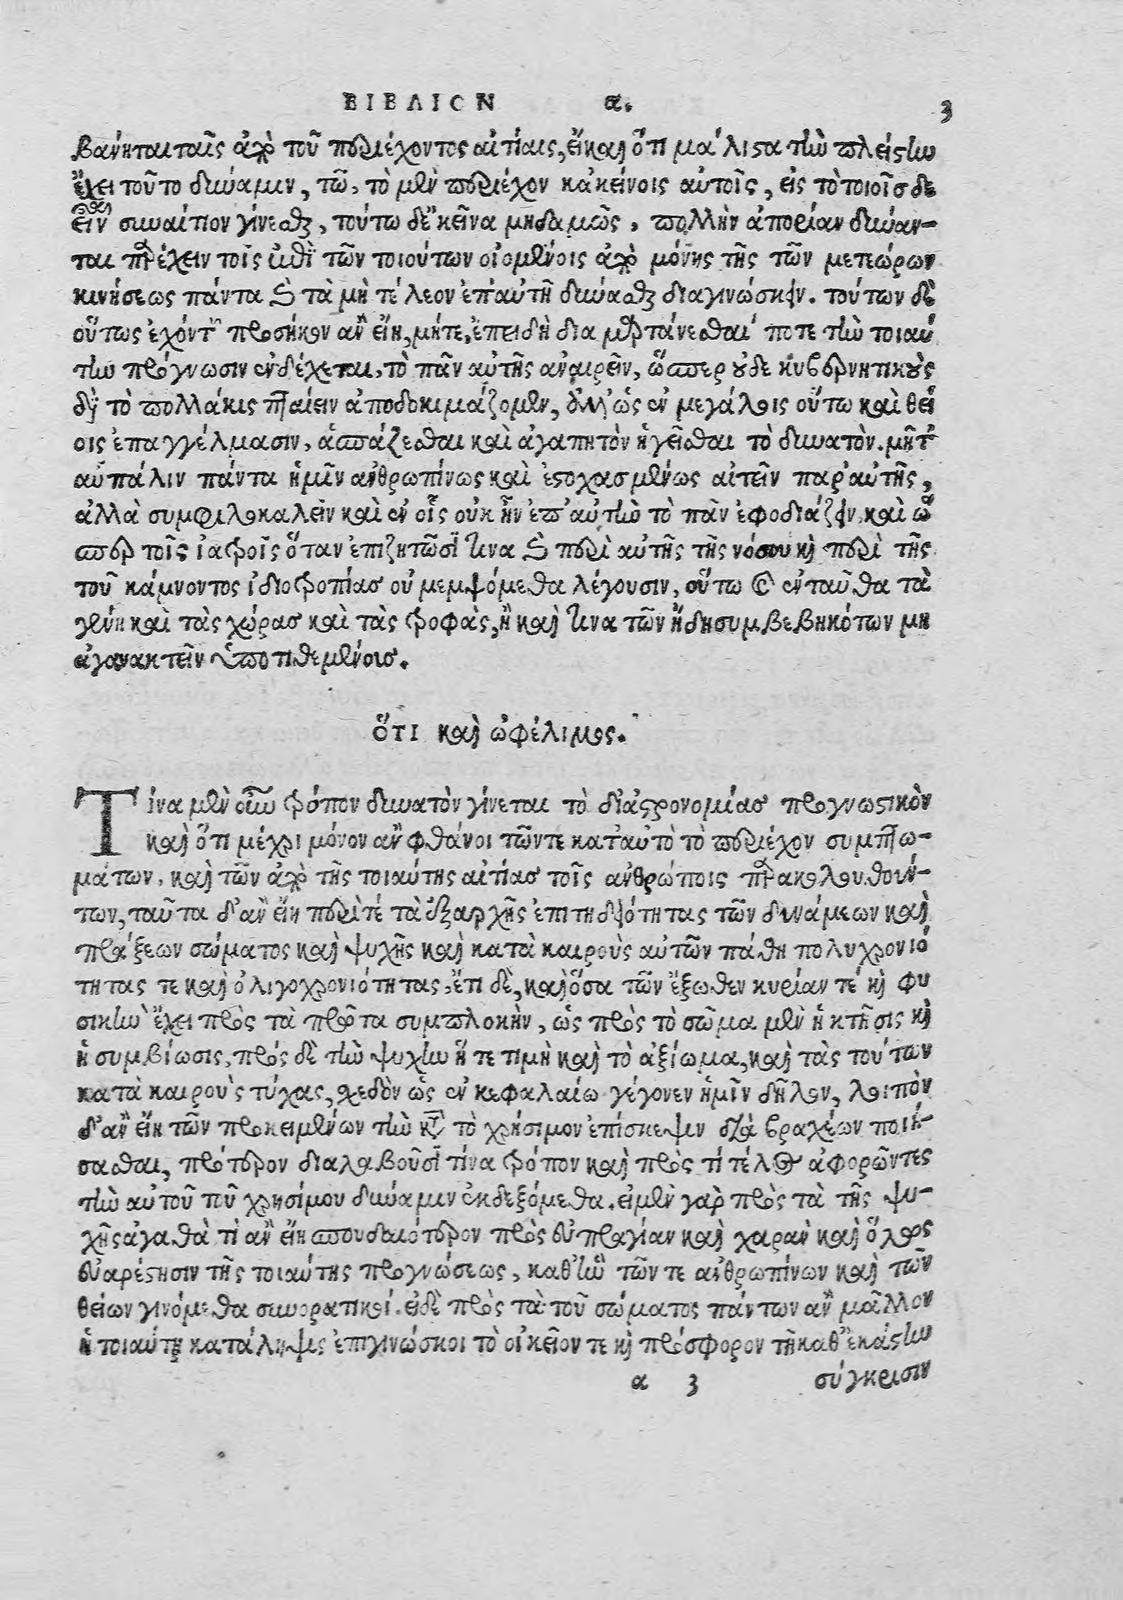 ΒΙΒΛΙΟΝ α. 3
βανηται ταῖς ἀπὸ τοῦ περιέχοντος αἰτίαις, εἴ καὶ ὅτι μάλιστα τὴν πλείστην
ἔχει τοῦτο δύναμιν, τῷ, τὸ μὲν περιέχον κἀκείνοις αὐτοῖς, εἰς τὸ τοιοῖσδε
εἶναι συναίτιον γίνεσθαι, τούτῳ δὲ κεῖνα μηδαμῶς, πολλὴν ἀπορίαν δύναν-
ται παρέχειν τοῖς ἐπὶ τῶν τοιούτων οἰομένοις ἀπὸ μόνης τῆς τῶν μετεώρων
κινήσεως πάντα καὶ τὰ μὴ τέλεον ἐπ' αὐτῇ δύνασθαι διαγινώσκειν. τούτων δὲ
οὕτως ἐχόντων προσήκον ἂν εἴη, μήτε, ἐπειδὴ διαμαρτάνεσθαί ποτε τὴν τοιαύ
την πρόγνωσιν ἐνδέχεται, τὸ πᾶν αὐτῆς ἀναιρεῖν, ὥσπερ οὐδὲ κυβερνητικοὺς
διὰ τὸ πολλάκις πταίειν ἀποδοκιμάζομεν, ἀλλ' ὡς ἐν μεγάλοις οὕτω καὶ θεί
οις ἐπαγγέλμασιν, ἀσπάζεσθαι καὶ ἀγαπητὸν ἡγεῖσθαι τὸ δυνατόν. μήτε
αὖ πάλιν πάντα ἡμῖν ἀνθρωπίνως καὶ ἐστοχασμένως αἰτεῖν παρ' αὐτῆς,
ἀλλὰ συμφιλοκαλεῖν καὶ ἐν οἷς οὐκ ἦν ἐπ' αὐτὴν τὸ πᾶν ἐφοδιάζειν. καὶ ὥ
σπερ τοῖς ἰατροῖς ὅταν ἐπιζητῶσί τινα καὶ περὶ αὐτῆς τῆς νόσου καὶ περὶ τῆς
τοῦ κάμνοντος ἰδιοτροπίας οὐ μεμψόμεθα λέγουσιν, οὕτω καὶ ἐνταῦθα τὰ
γένη καὶ τὰς χώρας καὶ τὰς τροφὰς, ἢ καὶ τινα τῶν ἤδη συμβεβηκότων μὴ
ἀγανακτεῖν ὑποτιθεμένοις.
ὅτι καὶ ὠφέλιμος.
Τίνα μὲν οὖν τρόπον δυνατὸν γίνεται τὸ δι' ἀστρονομίας προγνωστικὸν
καὶ ὅτι μέχρι μόνον ἂν φθάνοι τῶν τε κατ' αὐτὸ τὸ περιέχον συμπτω-
μάτων, καὶ τῶν ἀπὸ τῆς τοιαύτης αἰτίας τοῖς ἀνθρώποις παρακολουθούν-
των, ταῦτα δ' ἂν εἴη περί τε τὰ ἐξαρχῆς ἐπιτηδειότητας τῶν δυνάμεων καὶ
πράξεων σώματος καὶ ψυχῆς καὶ κατὰ καιροὺς αὐτῶν πάθη πολυχρονιό
τητας τε καὶ ὀλιγοχρονιότητας, ἔτι δὲ, καὶ ὅσα τῶν ἔξωθεν κυρίαν τέ καὶ φυ
σικὴν ἔχει πρὸς τὰ πρῶτα συμπλοκὴν, ὡς πρὸς τὸ σῶμα μὲν ἡ κτῆσις καὶ
ἡ συμβίωσις, πρὸς δὲ τὴν ψυχὴν ἥ τε τιμὴ καὶ τὸ ἀξίωμα, καὶ τὰς τούτων
κατὰ καιροὺς τύχας, σχεδὸν ὡς ἐν κεφαλαίῳ γέγονεν ἡμῖν δῆλον, λοιπὸν
δ' ἂν εἴη τῶν προκειμένων τὴν κατὰ τὸ χρήσιμον ἐπίσκεψιν διὰ βραχέων ποιή-
σασθαι, πρότερον διαλαβοῦσί τίνα τρόπον καὶ πρὸς τί τέλος ἀφορῶντες
τὴν αὐτοῦ τοῦ χρησίμου δύναμιν ἐκδεξόμεθα. εἰ μὲν γὰρ πρὸς τὰ τῆς ψυ-
χῆς ἀγαθὰ τί ἂν εἴη σπουδαιότερον πρὸς εὐπραγίαν καὶ χαρὰν καὶ ὅλως
εὐαρέστησιν τῆς τοιαύτης προγνώσεως, καθ' ἣν τῶν τε ἀνθρωπίνων καὶ τῶν
θείων γινόμεθα συνορατικοί. εἰ δὲ πρὸς τὰ τοῦ σώματος πάντων ἂν μᾶλλον
ἡ τοιαύτη κατάληψις ἐπιγινώσκοι τὸ οἰκεῖον τε καὶ πρόσφορον τῇ καθ' ἑκάστην
α 3 σύγκρισιν